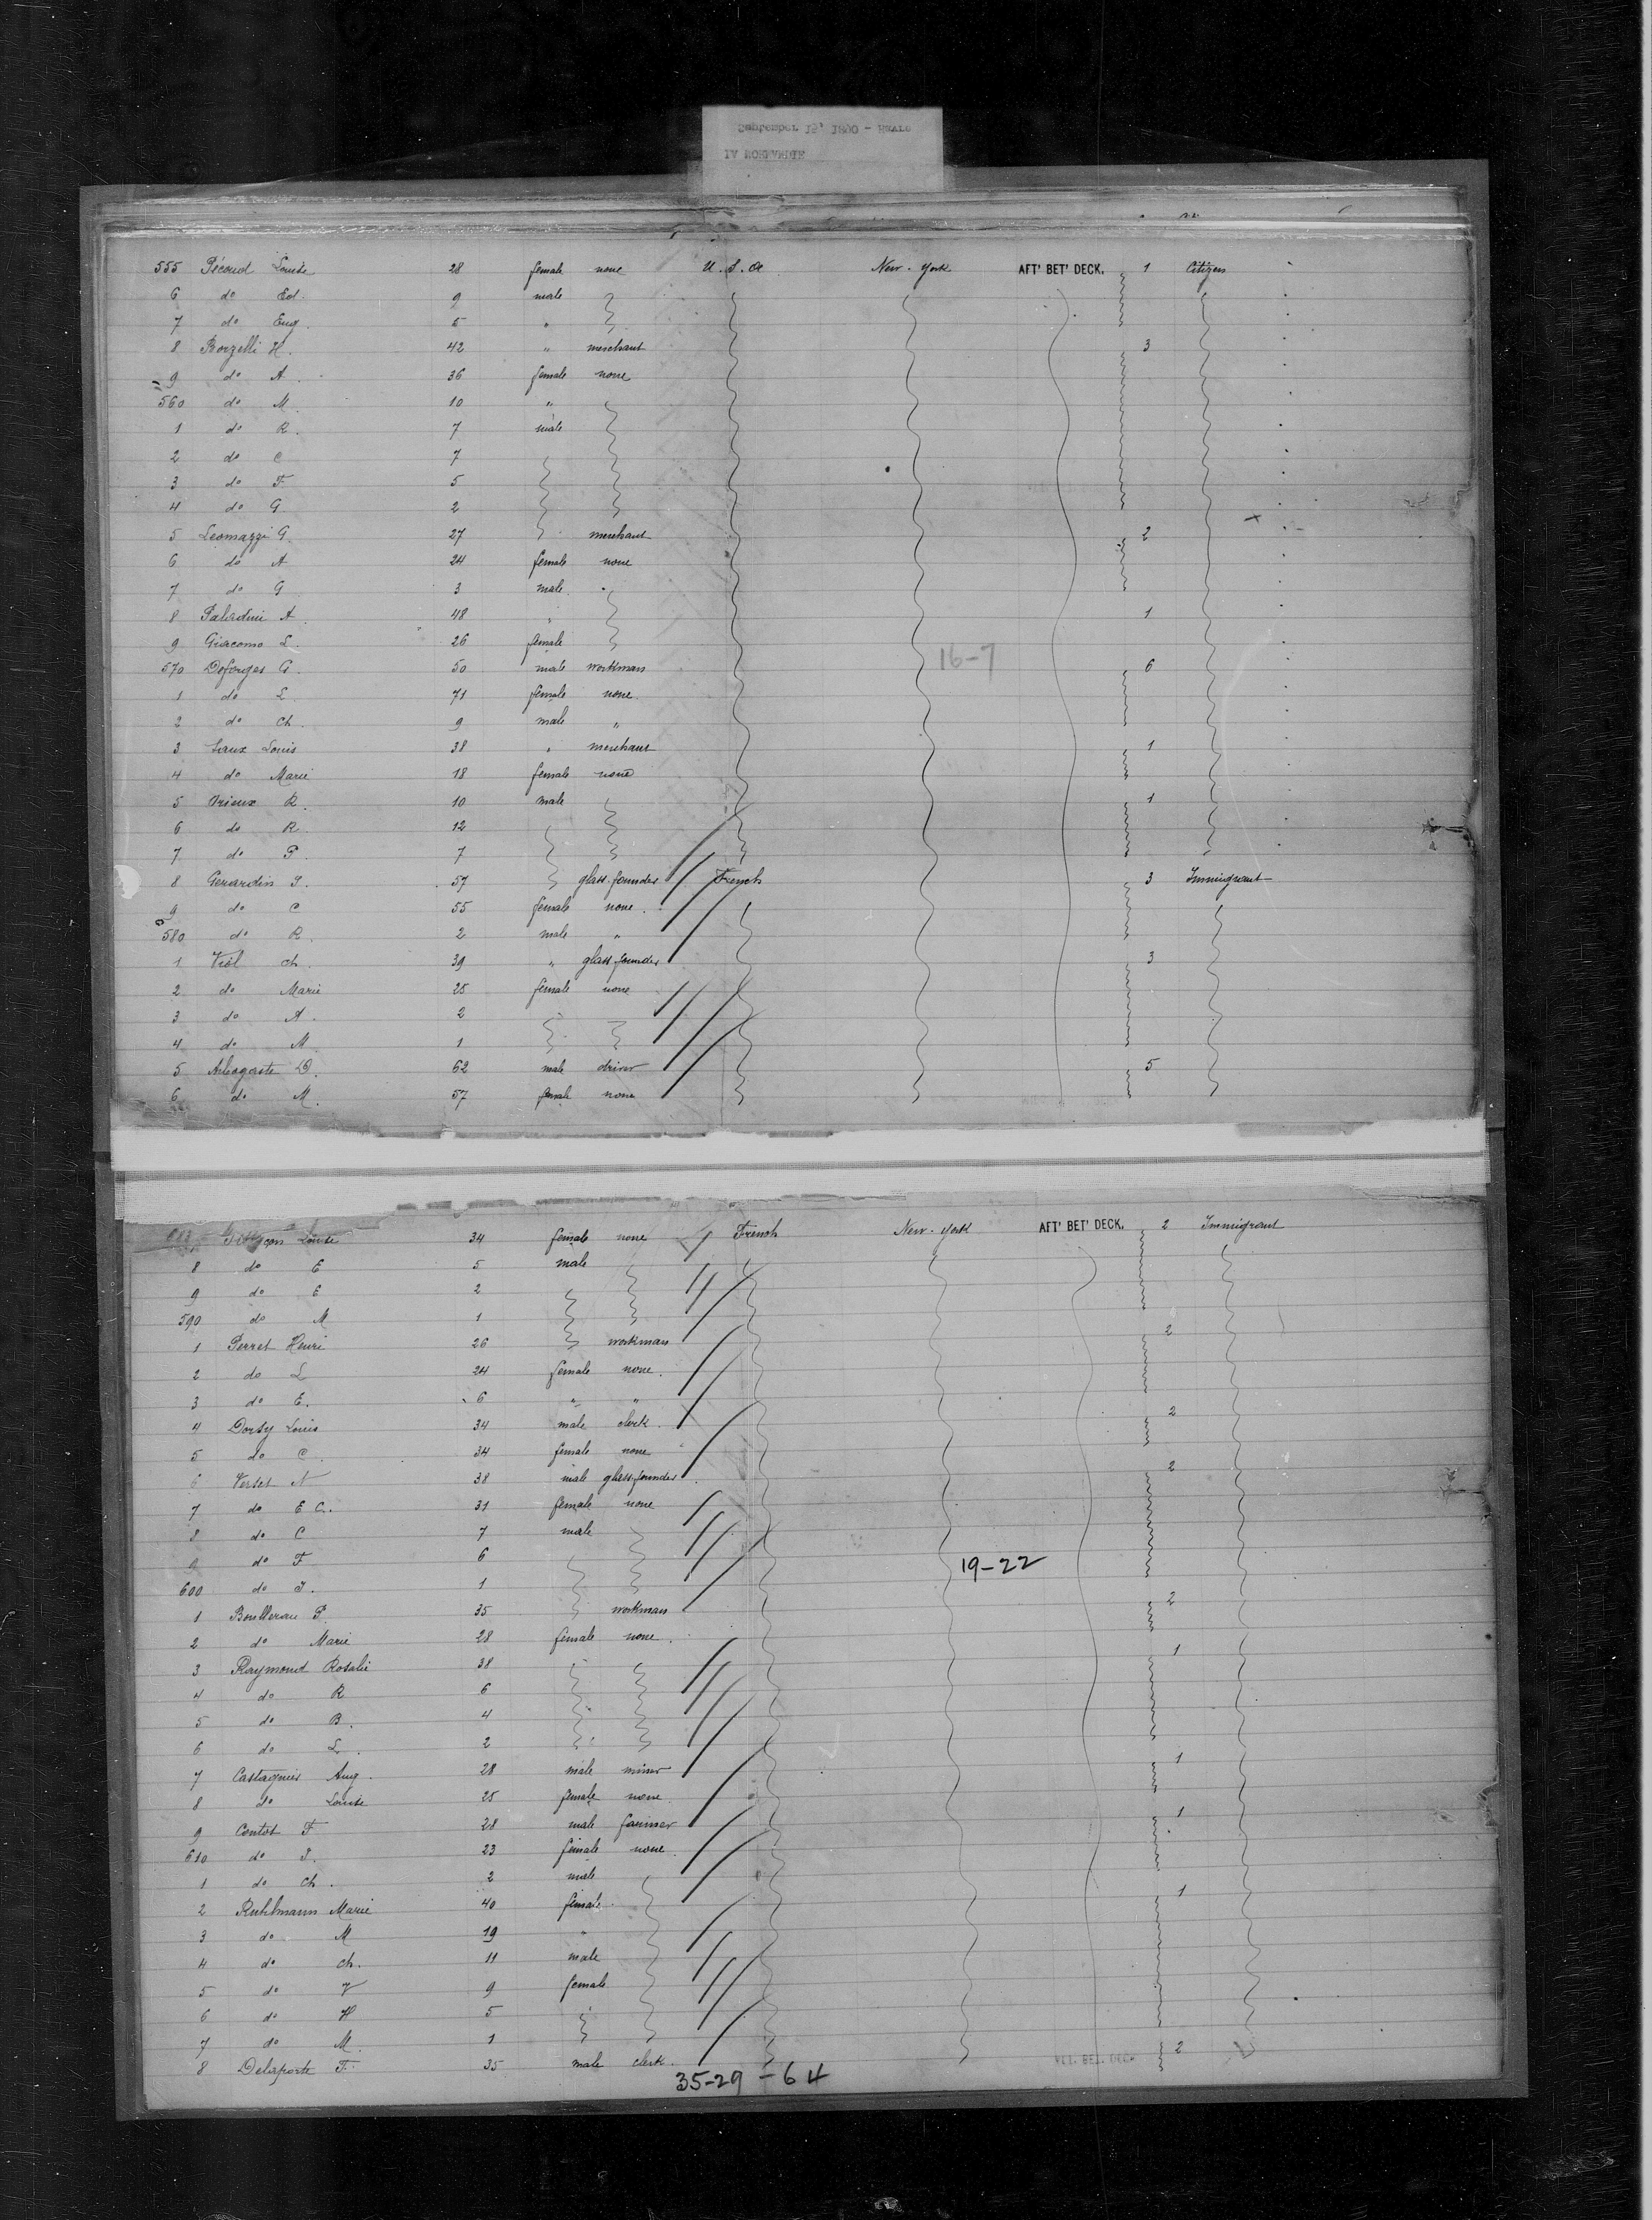 555 Pécoud Louise 28 female none U.S.A New-York AFT' BET' DECK. 1 Citizen
6 do Ed. 9 male
7 do Eug. 5 "
8 Borzelli H. 42 " merchant 3
9 do A. 36 female none
560 do M. 10 "
1 do R. 7 male
2 do C 7
3 do F. 5
4 do G. 2
5 Leomazzi G. 27 merchant 2
6 do A 24 female none
7 do G 3 male
8 Paladini A. 48 " 1
9 Giacomo L. 26 female
570 Deforges G. 50 male workman 6
16-7
1 do L. 71 female none
2 do Ch. 9 male "
3 Laux Louis 38 " merchant 1
4 do Marie 18 female none
5 Orieux R. 10 male 1
6 do R. 12
7 do P. 7
8 Gerardin J. 57 glass founder French 3 Immigrant
9 do C 55 female none
580 do R. 2 male "
1 Viol Ch. 39 " glass founder 3
2 do Marie 25 female none
3 do A. 2
4 do M 1
5 Arbogaste D. 62 male driver 5
6 do M. 57 female none
Louise 34 female none French New-York AFT' BET' DECK. 2 Immigrant
8 do E 5 male
9 do E 2
590 do M 1
1 Perret Henri 26 workman 2
2 do L 24 female none
3 do E. 6 " "
4 Dorsy Louis 34 male clerk 2
5 do C. 34 female none
6 Verset N 38 male glass founder 2
7 do E C. 31 female none
8 do C 7 male
9 do F 6
19-22
600 do J. 1
1 Boullerau P. 35 workman 2
2 do Marie 28 female none
3 Raymond Rosalie 38 1
4 do R 6
5 do B. 4
6 do L. 2
7 Castagnies Aug. 28 male miner 1
8 do Louise 25 female none
9 Contot F 28 male farmer 1
610 do J. 23 female none
1 do Ch. 2 male
2 Ruhlmann Marie 40 female 1
3 do M 19 "
4 do Ch. 11 male
5 do V 9 female
6 do H 5
7 do M. 1
8 Delaporte F. 35 male clerk 2
35-29-64